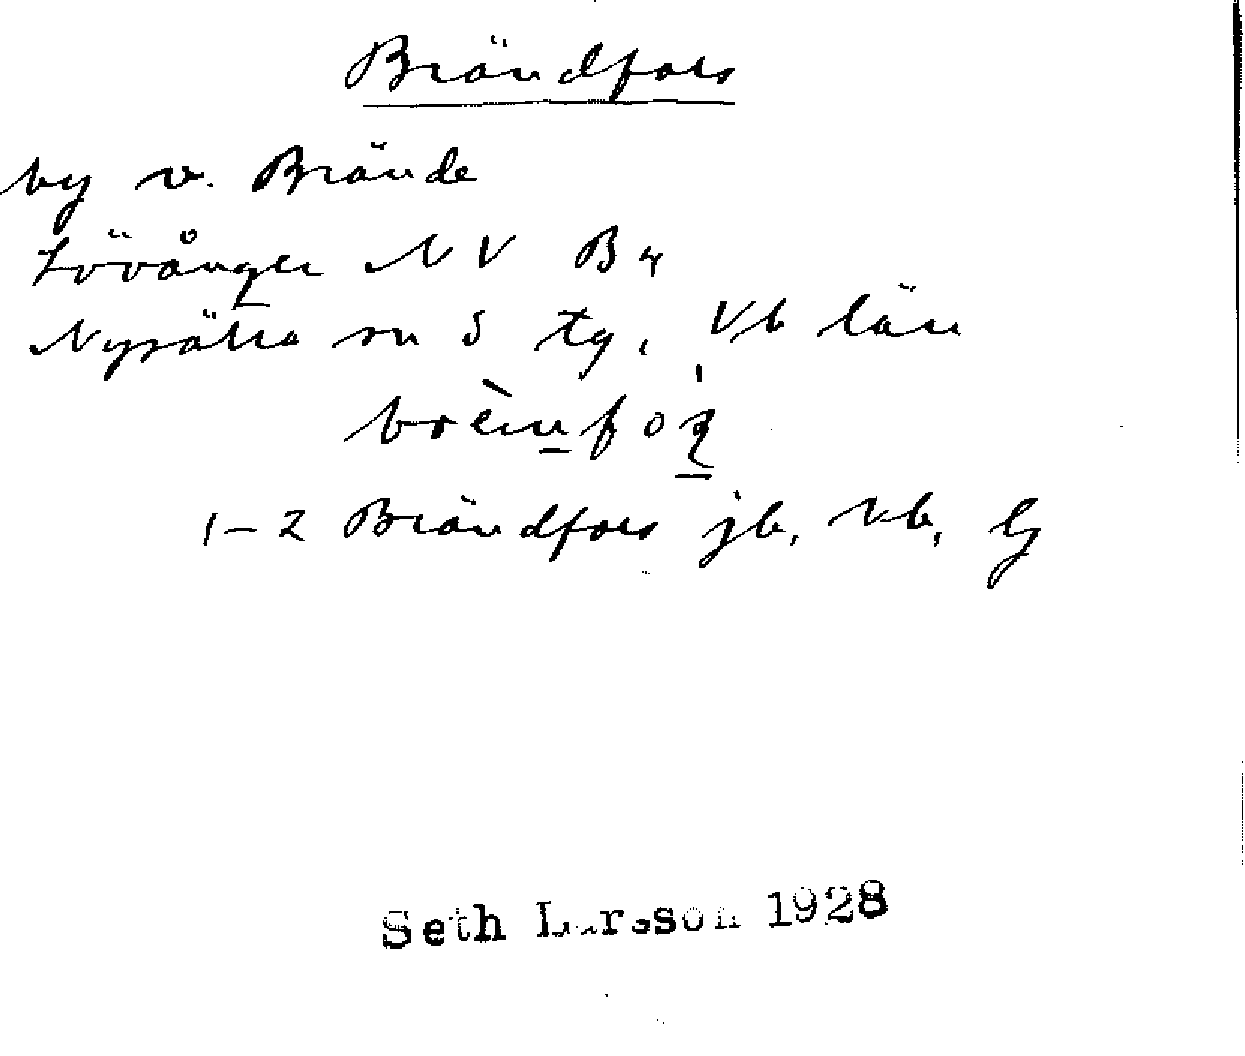 Brändfors
by v. Brände
Lövånger NV B4
Nysätra sn S tg, Vb län
1-2 Brändfors jb, kb, Lj
Seth Larsson 1928